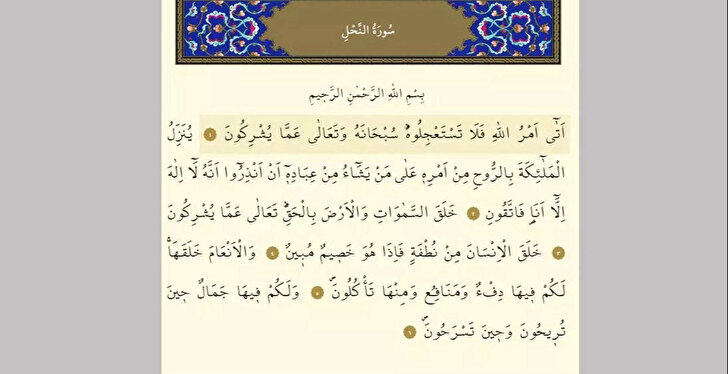 سُورَةُ النَّحْلِ
بِسْمِ اللهِ الرَّحْمٰنِ الرَّحٖيمِ
اَتٰٓى اَمْرُ اللهِ فَلَا تَسْتَعْجِلُوهُۜ سُبْحَانَهُ وَتَعَالٰى عَمَّا يُشْرِكُونَ ﴿١﴾ يُنَزِّلُ
الْمَلٰٓئِكَةَ بِالرُّوحِ مِنْ اَمْرِهٖ عَلٰى مَنْ يَشَٓاءُ مِنْ عِبَادِهٖٓ اَنْ اَنْذِرُٓوا اَنَّهُ لَٓا اِلٰهَ
اِلَّٓا اَنَا۬ فَاتَّقُونِ ﴿٢﴾ خَلَقَ السَّمٰوَاتِ وَالْاَرْضَ بِالْحَقِّۜ تَعَالٰى عَمَّا يُشْرِكُونَ
﴿٣﴾ خَلَقَ الْاِنْسَانَ مِنْ نُطْفَةٍ فَاِذَا هُوَ خَصٖيمٌ مُبٖينٌ ﴿٤﴾ وَالْاَنْعَامَ خَلَقَهَاۚ
لَكُمْ فٖيهَا دِفْءٌ وَمَنَافِعُ وَمِنْهَا تَأْكُلُونَۖ ﴿٥﴾ وَلَكُمْ فٖيهَا جَمَالٌ حٖينَ
تُرٖيحُونَ وَحٖينَ تَسْرَحُونَۖ ﴿٦﴾